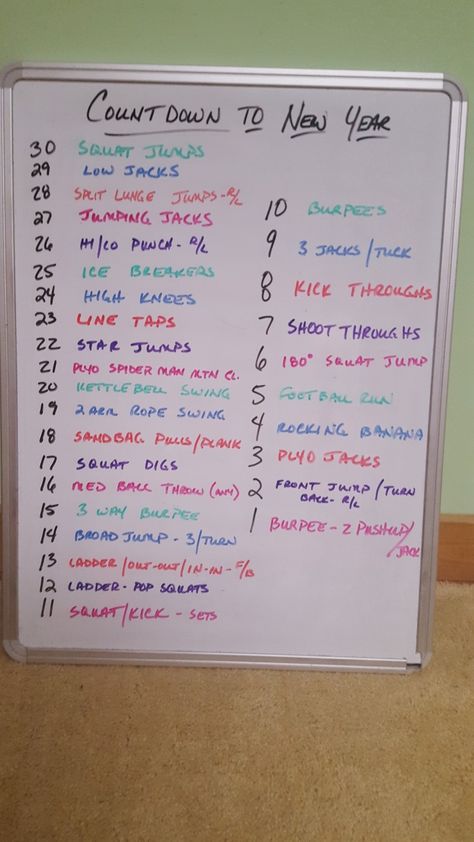 COUNTDOWN TO NEW YEAR
30 SQUAT JUMPS
29 LOW JACKS
28 SPLIT LUNGE JUMPS-R/L
27 JUMPING JACKS
26 HI/LO PUNCH-R/L
25 ICE BREAKERS
24 HIGH KNEES
23 LINE TAPS
22 STAR JUMPS
21 PLYO SPIDER MAN MTN CL.
20 KETTLEBELL SWING
19 2 ARM ROPE SWING
18 SANDBAG PULLS/PLANK
17 SQUAT DIGS
16 MED BALL THROW (ANY)
15 3 WAY BURPEE
14 BROAD JUMP - 3/TURN
13 LADDER/OUT-OUT/IN-IN-F/B
12 LADDER-POP SQUATS
11 SQUAT/KICK - SETS
10 BURPEES
9 3 JACKS/TUCK
8 KICK THROUGHS
7 SHOOT THROUGHS
6 180° SQUAT JUMP
5 FOOTBALL RUN
4 ROCKING BANANA
3 PLYO JACKS
2 FRONT JUMP/TURN
BACK-R/L
1 BURPEE-2 PUSHUP/
JACK